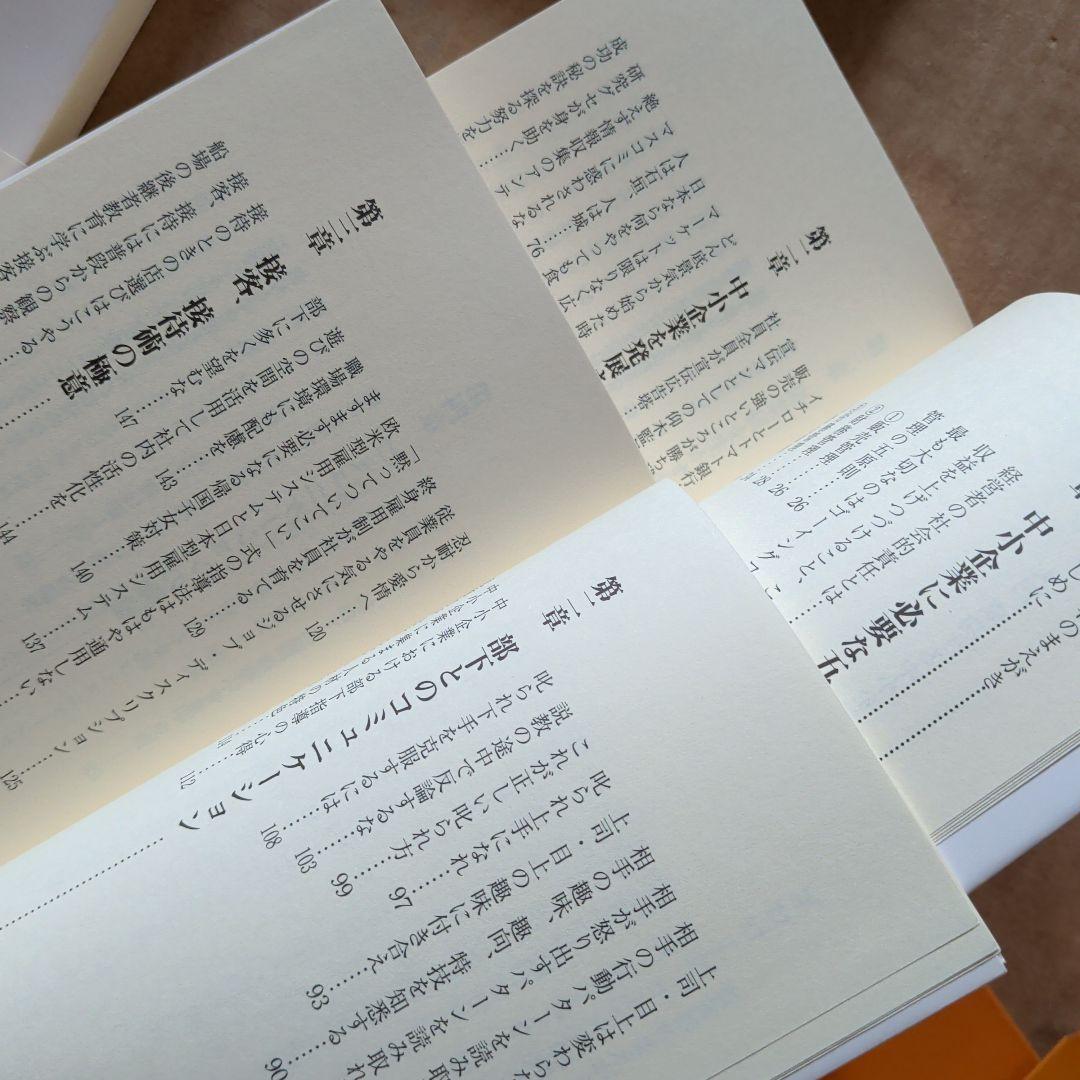 第三章　接客、接待術の極意
接待のときの店選びはこうやる
接客、接待には普段からの観察
船場の後継者教育に学ぶ接客
忍耐から愛情へ……120
従業員をやる気にさせるジョブ・ディスクリプション……125
終身雇用制が社員を育てる……129
「黙ってついてこい」式の指導法はもはや通用しない……137
欧米型雇用システムと日本型雇用システム……140
ますます必要になる帰国子女対策
職場環境にも配慮を……143
遊びの空間を活用して社内の活性化を
部下に多くを望むな……147
144
第二章　中小企業を発展
どん底景気から始めた時
日本マーケットは限りなく広
人は石垣、人は城……76
マスコミに惑わされるな
絶えず情報収集のアンテ
研究グセが身を助く
成功の秘訣を探る努力を
イチローとトマト銀行
販売の強いところが勝ち
宣伝マンとしての仰木監
社員全員が宣伝広告塔
のまえがき
じめに
中小企業に必要な五
経営者の社会的責任とは
収益を上げつづけること、
最も大切なのはゴーイング・コ
管理の五原則
①販売管理 26
26
28
第二章　部下とのコミュニケーション
中小企業における部下指導の心得……112
上司・目上は変わらな
相手の行動パターンを読み取れ……90
相手が怒り出すパターンを読み
相手の趣味、趣向、特技を知悉する
上司・目上の趣味に付き合え……93
叱られ上手になれ……97
これが正しい叱られ方……99
説教の途中で反論するな……103
叱られ下手を克服するには……108